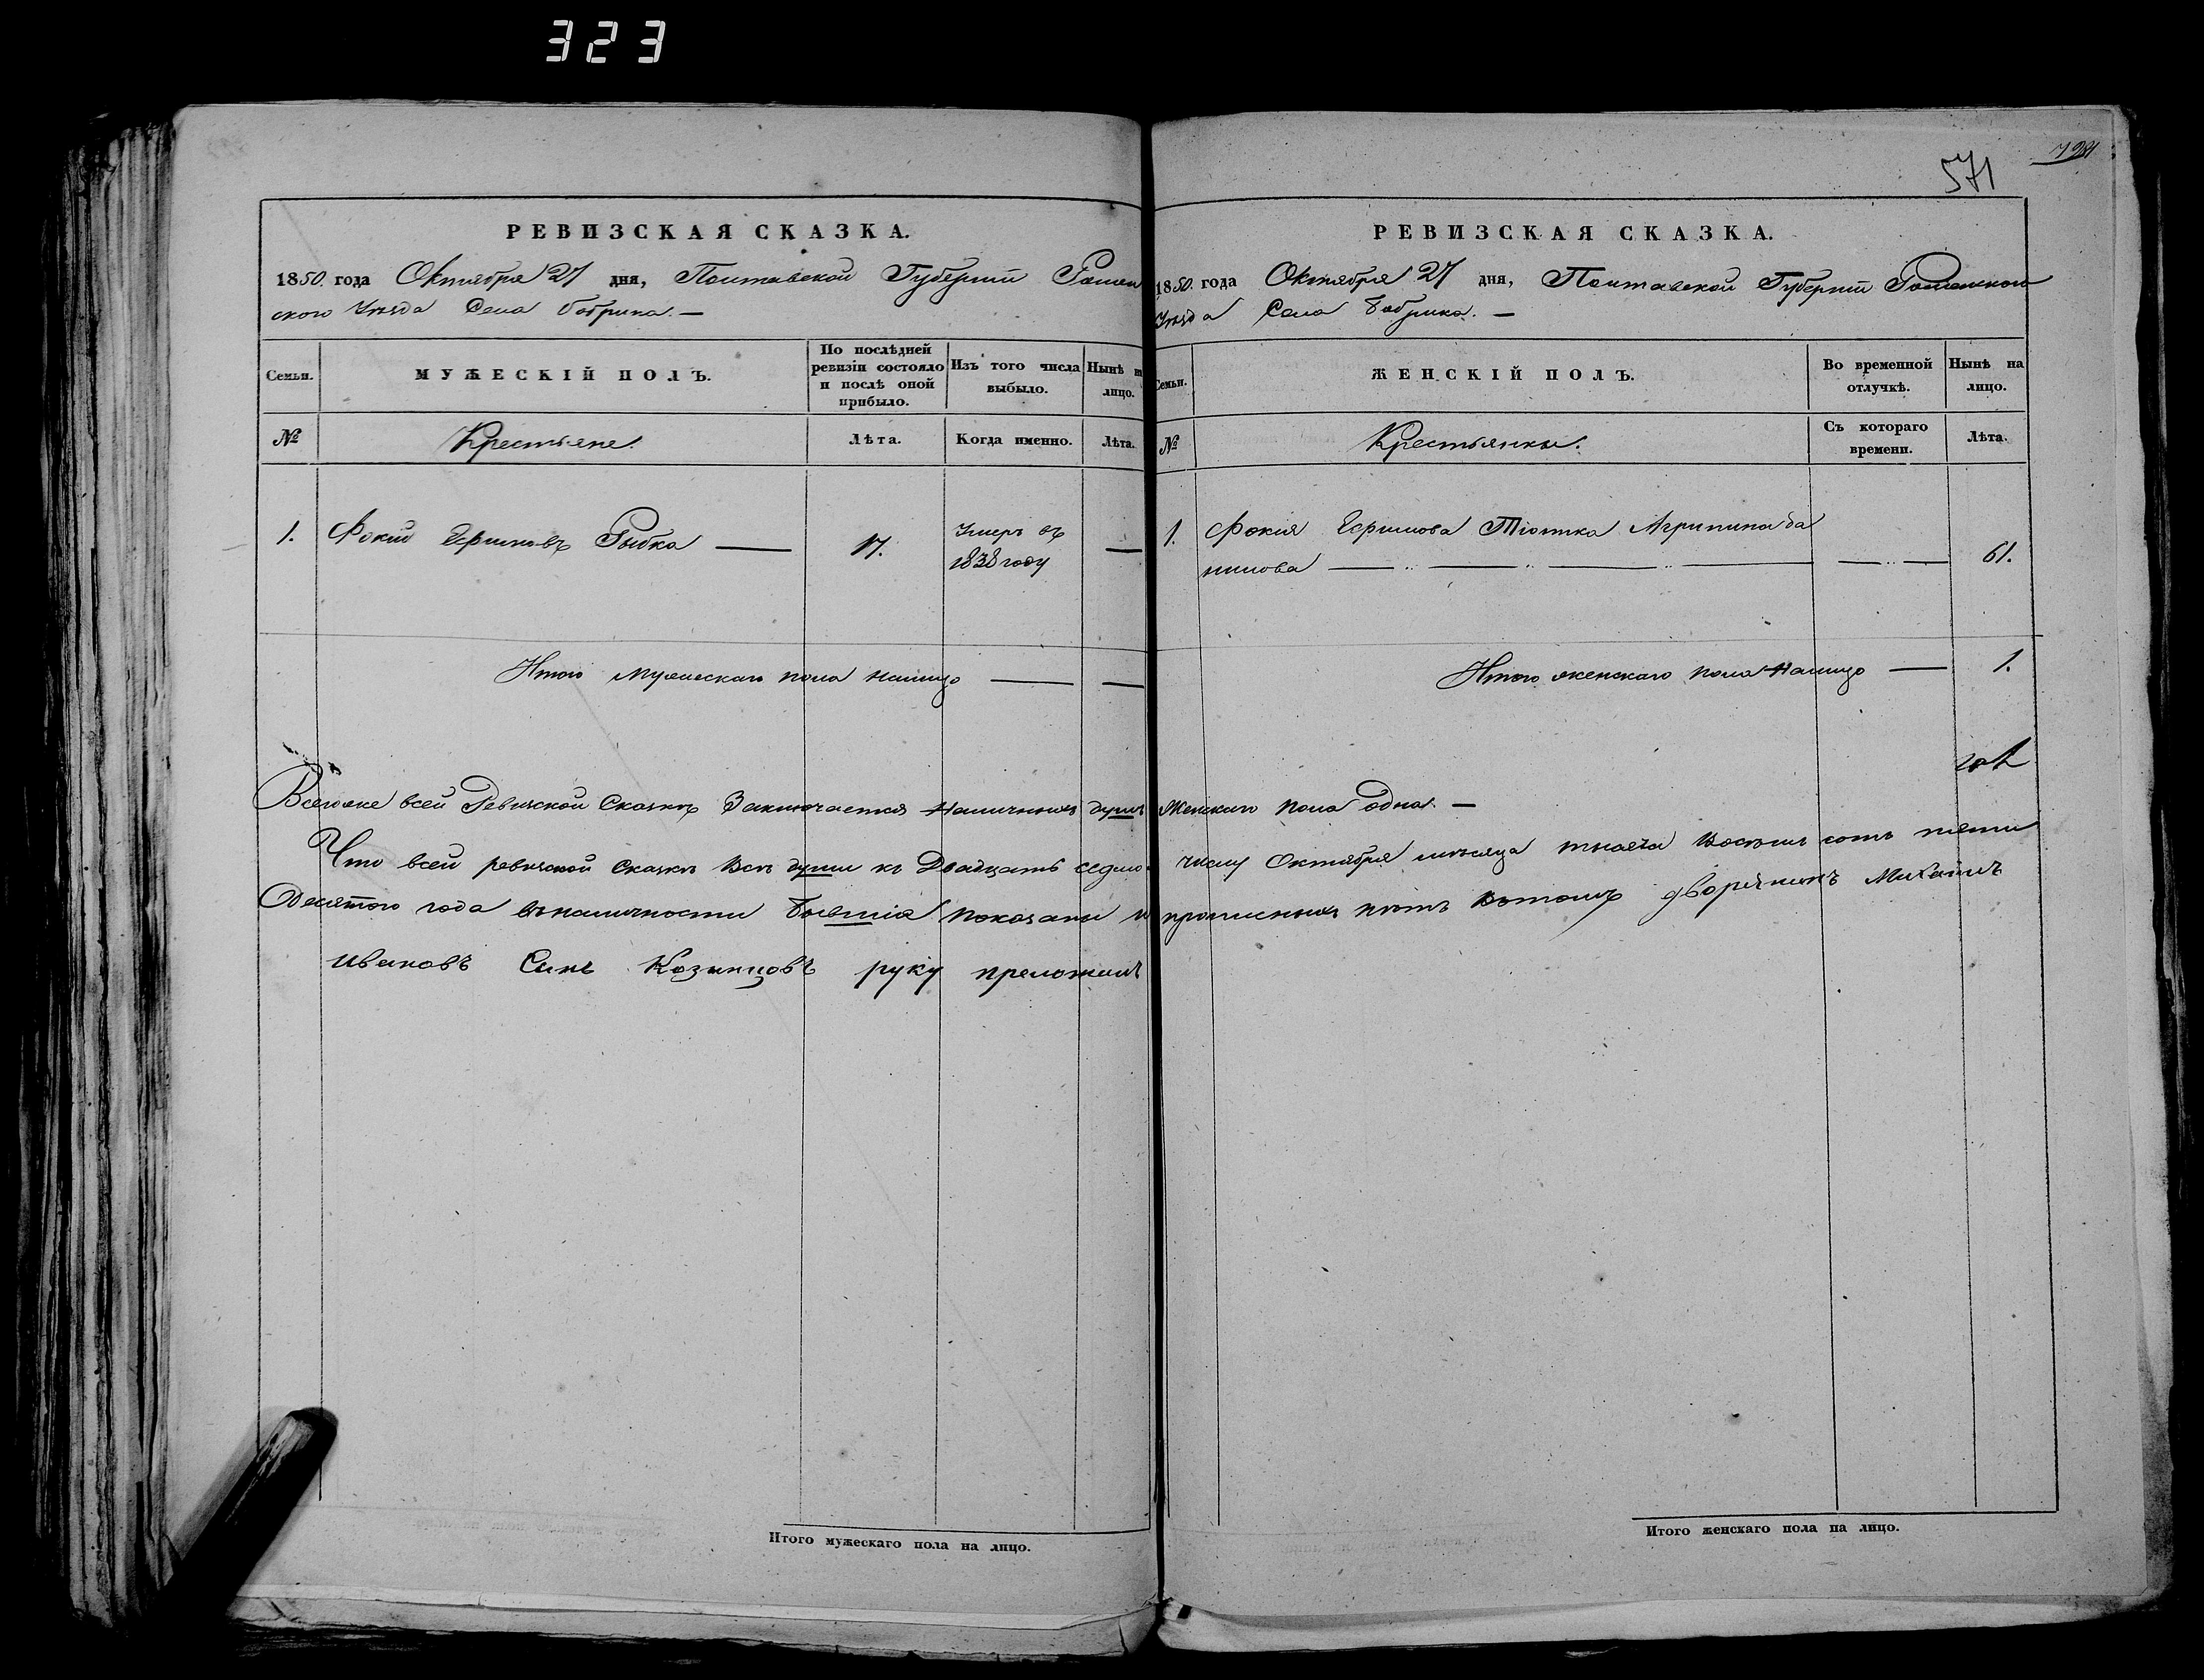 323
571
РЕВИЗСКАЯ СКАЗКА.
1850. года Октября 27 дня, Полтавской Губернiи Ромен
ского Уѣзда Села Бобрика. —
Семьи.
МУЖЕСКІЙ ПОЛЪ.
По послѣдней
ревизіи состояло
и послѣ оной
прибыло.
Изъ того числа
выбыло.
Нынѣ н
лицо.
№
Крестьяне.
Лѣта.
Когда именно.
Лѣта.
1. Фокий Ефимовъ Рыбка — 17. Умеръ въ
1838 году —
Итого мужескаго пола налицо — —
РЕВИЗСКАЯ СКАЗКА.
1850. года Октября 27 дня, Полтавской Губернiи Роменского
Уѣзда Села Бобрика. —
Семьи.
ЖЕНСКІЙ ПОЛЪ.
Во временной
отлучкѣ.
Нынѣ на
лицо.
№
Крестьянки.
Съ котораго
времени.
Лѣта.
1. Фокия Ефимова Тіотка Агрипина Да
нилова — 61.
Итого женскаго пола налицо — 1.
Всегоже всей Ревизской Сказкѣ Заключается Наличныхъ душъ Женскаго пола одна. —
Что всей ревизской Сказкѣ Всѣ души къ Двадцать седмо числу Октября мѣсяца тысяча Восемь сотъ пяти
Десятого года вналичности бывшiя показаны и прописныхъ нѣтъ Вътомъ дворянинъ Михаилъ
Ивановъ Синъ Козинцовъ руку преложилъ
Итого мужескаго пола на лицо.
Итого женскаго пола на лицо.